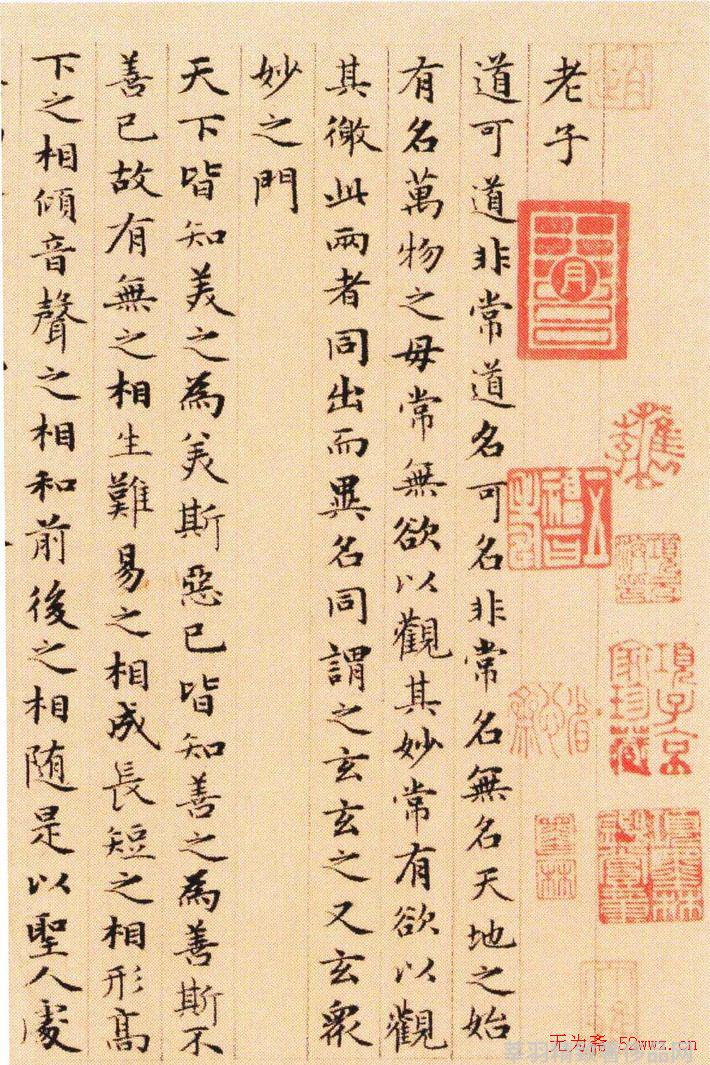 項子京
家珍藏
老子
道可道非常道名可名非常名無名天地之始
有名萬物之母常無欲以觀其妙常有欲以觀
其徼此兩者同出而異名同謂之玄玄之又玄衆
妙之門
天下皆知美之為美斯惡已皆知善之為善斯不
善已故有無之相生難易之相成長短之相形高
下之相傾音聲之相和前後之相随是以聖人處
无为斋 52wwz.cn